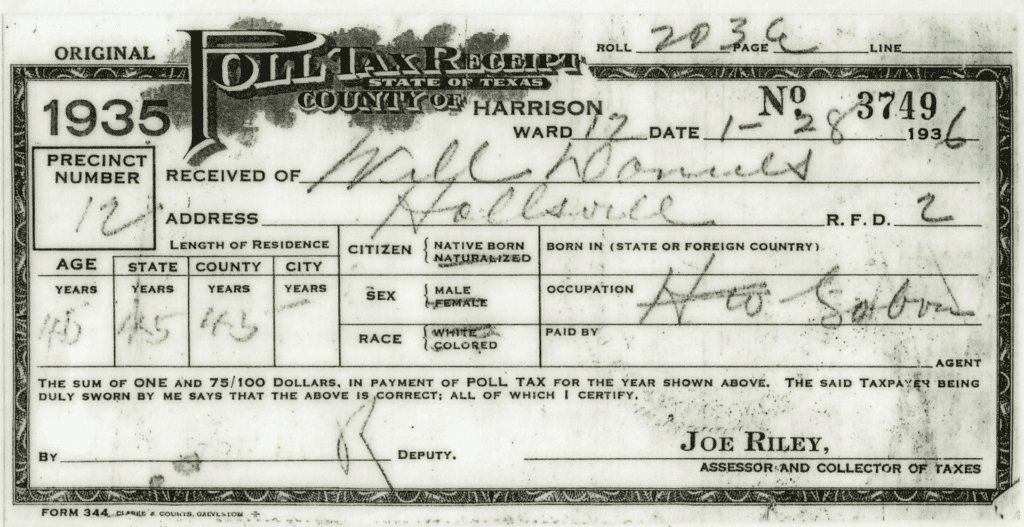 ORIGINAL
POLL TAX RECEIPT
STATE OF TEXAS
ROLL 2036 PAGE LINE
1935
COUNTY OF HARRISON
Nº 3749
WARD 12 DATE 1-28 1936
PRECINCT NUMBER
12
RECEIVED OF Will Daniels
ADDRESS Hallsvill R.F.D. 2
LENGTH OF RESIDENCE
AGE STATE COUNTY CITY
YEARS YEARS YEARS YEARS
45 45 45 -
CITIZEN { NATIVE BORN
NATURALIZED
SEX { MALE
FEMALE
RACE { WHITE
COLORED
BORN IN (STATE OR FOREIGN COUNTRY)
OCCUPATION
PAID BY
AGENT
THE SUM OF ONE AND 75/100 DOLLARS, IN PAYMENT OF POLL TAX FOR THE YEAR SHOWN ABOVE. THE SAID TAXPAYER BEING
DULY SWORN BY ME SAYS THAT THE ABOVE IS CORRECT; ALL OF WHICH I CERTIFY.
BY R DEPUTY.
JOE RILEY,
ASSESSOR AND COLLECTOR OF TAXES
FORM 344 CLARKE & COURTS, GALVESTON